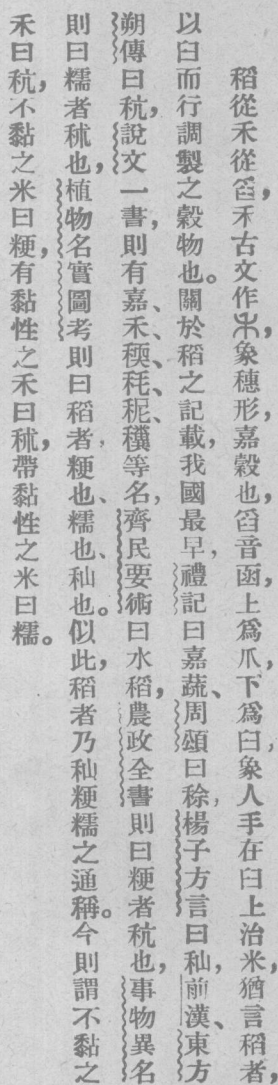 稻從禾從舀，禾古文作𥝌，象穗形，嘉穀也，舀音函，上爲爪，下爲臼，象人手在臼上治米，猶言稻者，
以臼而行調製之穀物也。關於稻之記載，我國最早，禮記曰嘉蔬、周頌曰稌，楊子方言曰秈，前漢、東方
朔傳曰秔，說文一書，則有嘉、禾、稬、秏、秜、穬等名，齊民要術曰水稻，農政全書則曰粳者秔也，事物異名
則曰糯者秫也，植物名實圖考則曰稻者，粳也、糯也、秈也。似此，稻者乃秈粳糯之通稱。今則謂不黏之
禾曰秔，不黏之米曰粳，有黏性之禾曰秫，帶黏性之米曰糯。